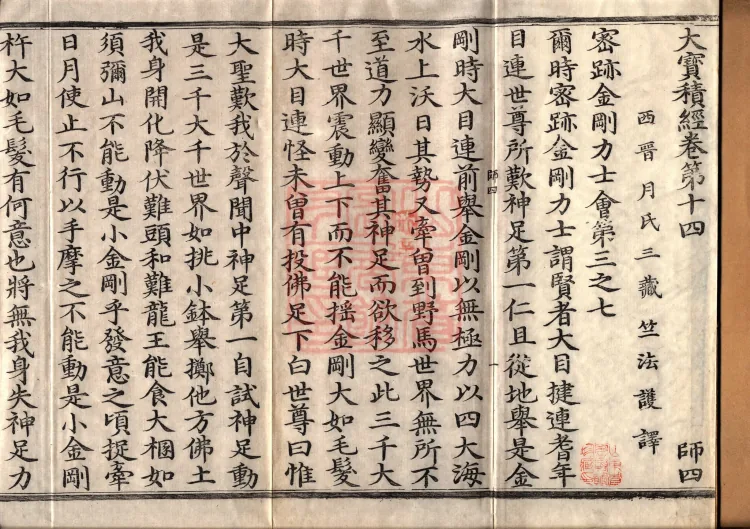 大寶積經卷第十四 師四
西晉月氏三藏竺法護譯
密跡金剛力士會第三之七
爾時密跡金剛力士謂賢者大目揵連耆年
目連世尊所歎神足第一仁且從地舉是金
師四
一
剛時大目連前舉金剛以無極力以四大海
水上沃日其勢又牽曾到野馬世界無所不
至道力顯變奮其神足而欲移之此三千大
千世界震動上下而不能搖金剛大如毛髮
時大目連怪未曾有投佛足下白世尊曰惟
大聖歎我於聲聞中神足第一自試神足動
是三千大千世界如挑小鉢舉擲他方佛土
我身開化降伏難頭和難龍王能食大棞如
須彌山不能動是小金剛乎發意之頃捉牽
日月使止不行以手摩之不能動是小金剛
杵大如毛髮有何意也將無我身失神足力